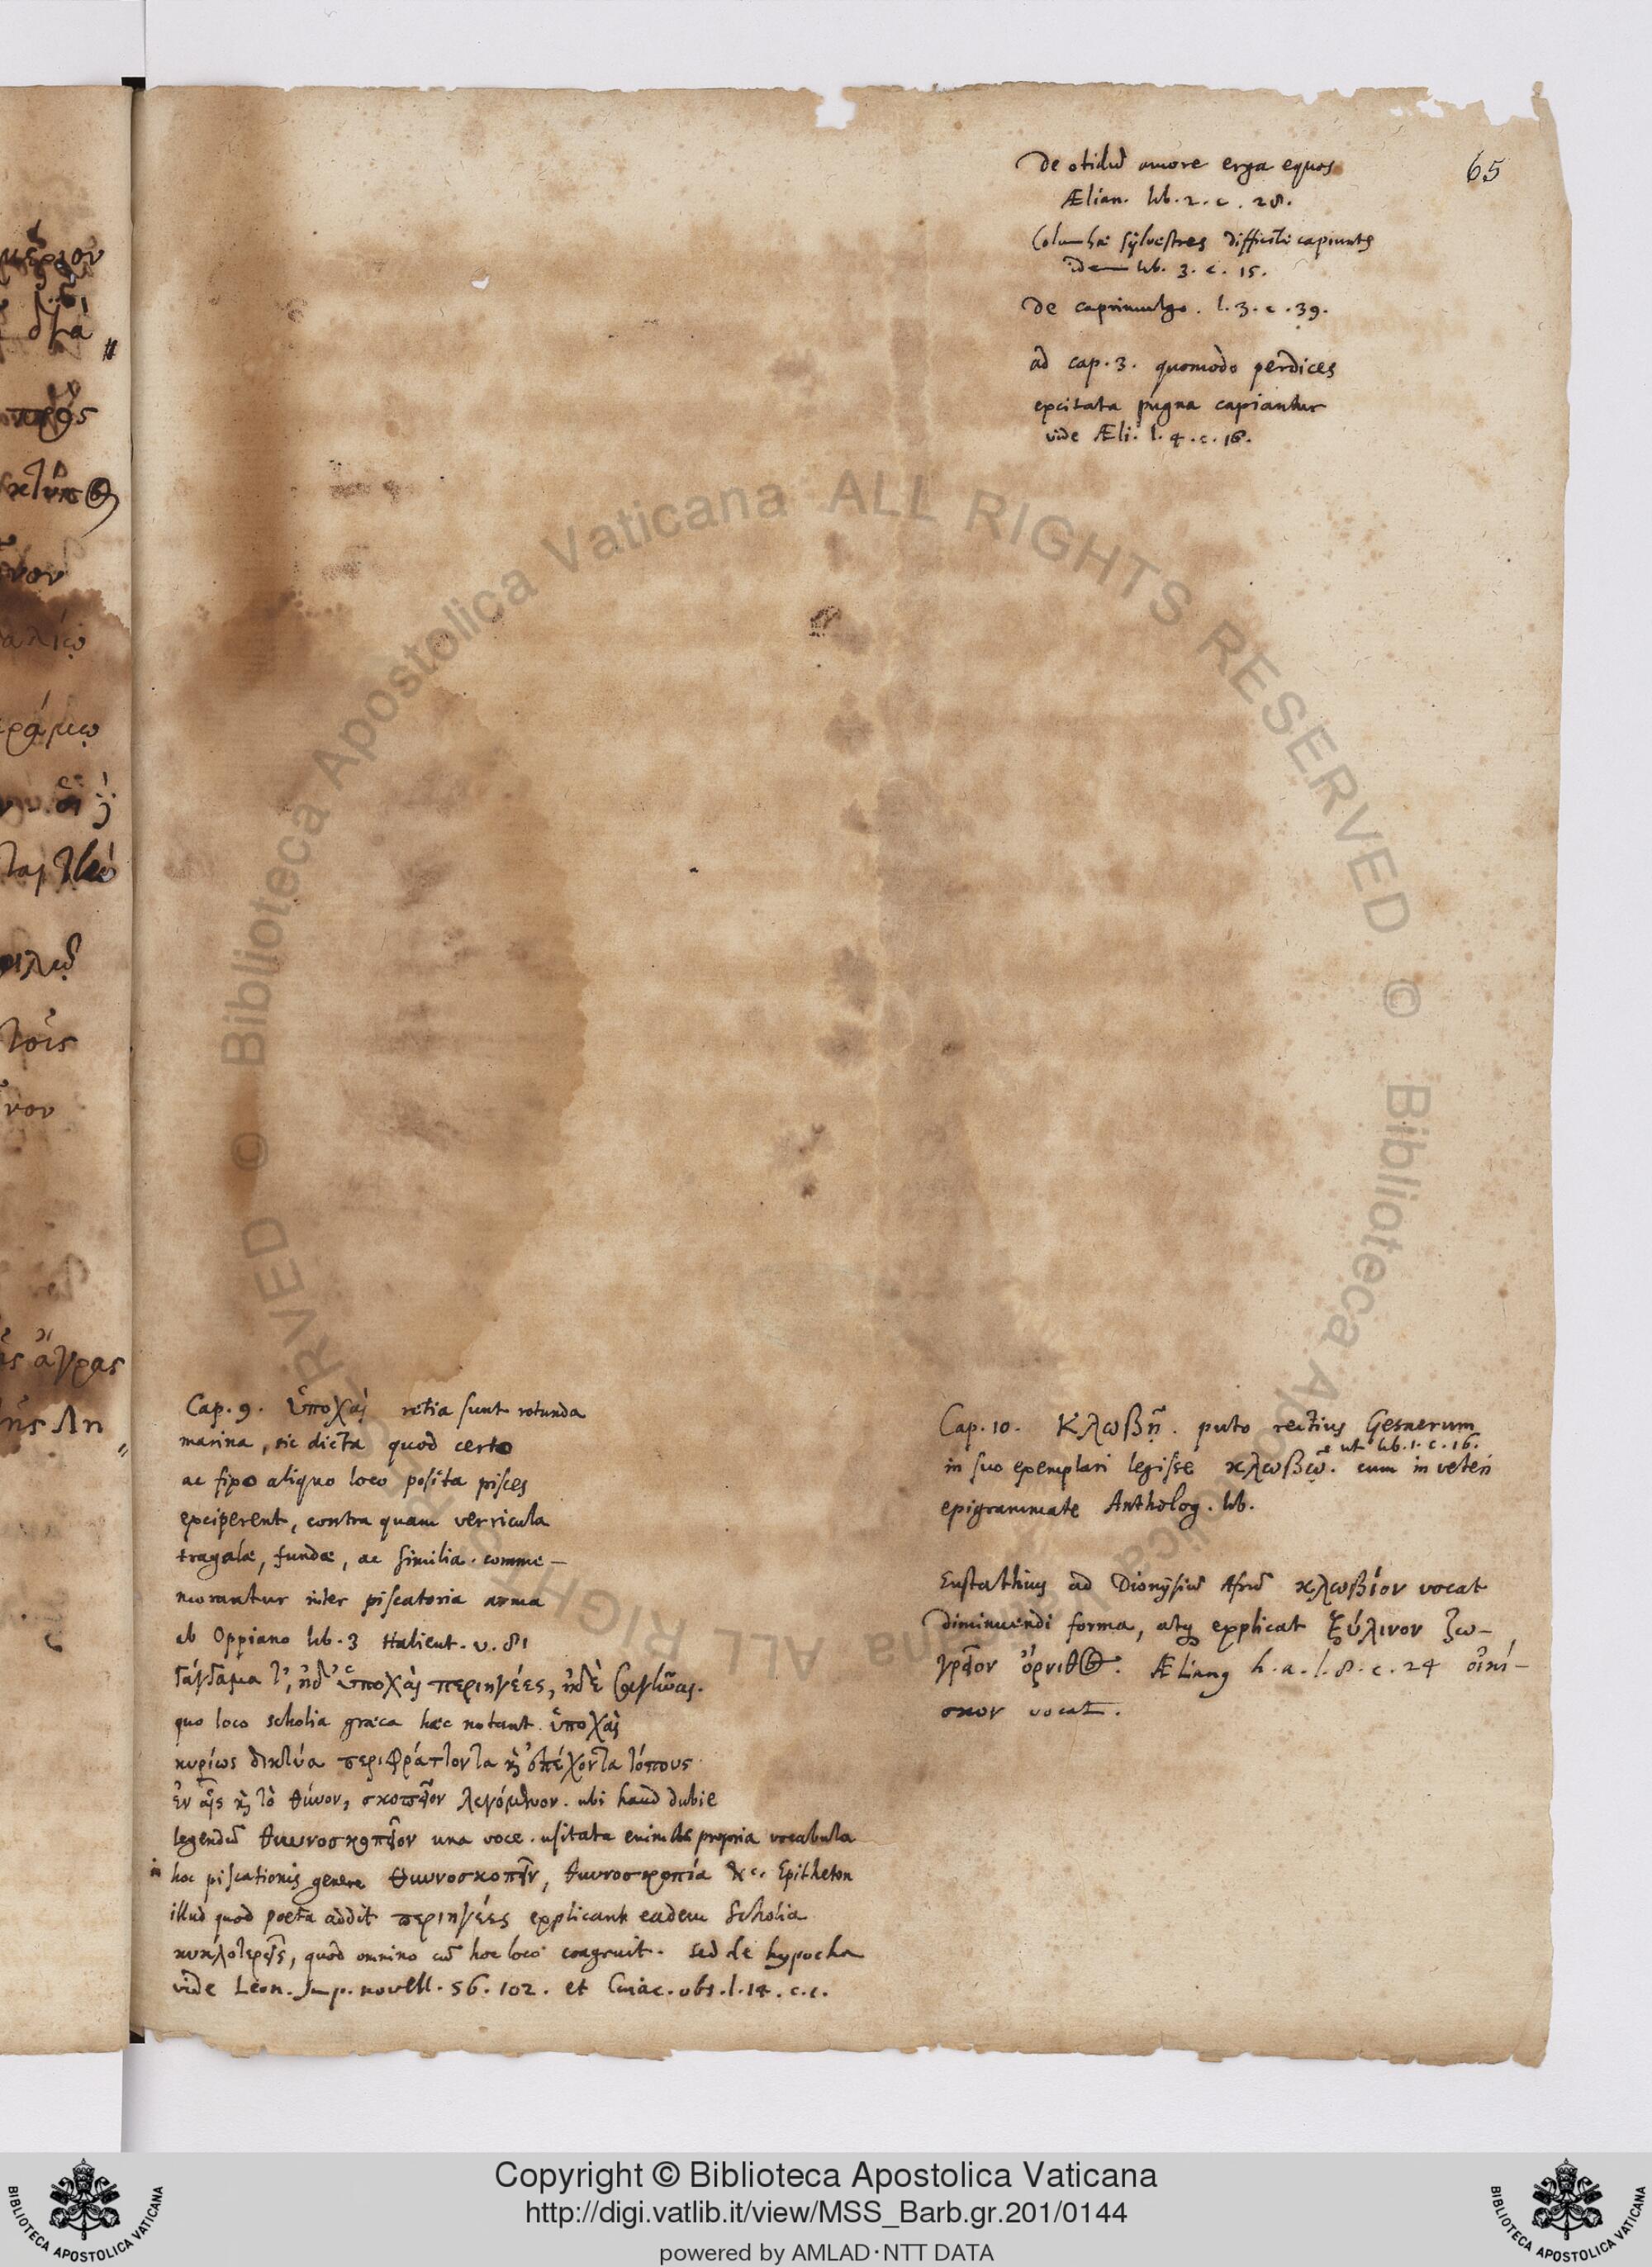 65
De otidũ amore erga equos
Ælian. lib. 2. c. 28.
Columbæ sylvestres difficile capiuntur
idem lib. 3. c. 15.
De caprimulgo. l. 3. c. 39.
ad cap. 3. quomodo perdices
excitata pugna capiantur
vide Æli. l. 4. c. 16.
Cap. 9. ὑποχαὶ retia sunt rotunda
marina, sic dicta quod certo
ac fixo aliquo loco posita pisces
exciperent, contra quam verricula
tragulæ, fundæ, ac similia. comme-
morantur inter piscatoria arma
ab Oppiano lib. 3 Halieut. v. 81
γάγγαμα τ', ἠδ' ὑποχαὶ περιηγέες, ἠδὲ σαγῆναι.
quo loco scholia græca hæc notant. ὑποχαὶ
κυρίως δικτύα περιφράττοντα καὶ τόπους
ἐν αἷς καὶ τὸ θύνον, σκοπεῖον λεγόμενον. ubi haud dubie
legendũ θυννοσκοπεῖον una voce. usitata enim propria vocabula
in hoc piscationis genere θυννοσκοπεῖν, θυννοσκοπία &c. Epitheton
illud quod poeta addit περιηγέες explicant eadem Scholia
κυκλοτερεῖς, quod omnino cũ hoc loco congruit. sed de hypocha
vide Leon. Imp. novell. 56. 102. et Cuiac. obs. l. 14. c. 1.
Cap. 10. Κλωβῇ. puto rectius Gesnerum
in suo exemplari legisse κλωβῷ. ut lib. 1. c. 16. cum in veteri
epigrammate Antholog. lib.
Eustathius ad Dionysiũ Afrũ κλωβίον vocat
diminuendi forma, atq; explicat ξύλινον ζω-
γρεῖον ὄρνιθος. Ælianus h. a. l. 8. c. 24 οἰκί-
σκον vocat.
Copyright © Biblioteca Apostolica Vaticana
http://digi.vatlib.it/view/MSS_Barb.gr.201/0144
powered by AMLAD·NTT DATA